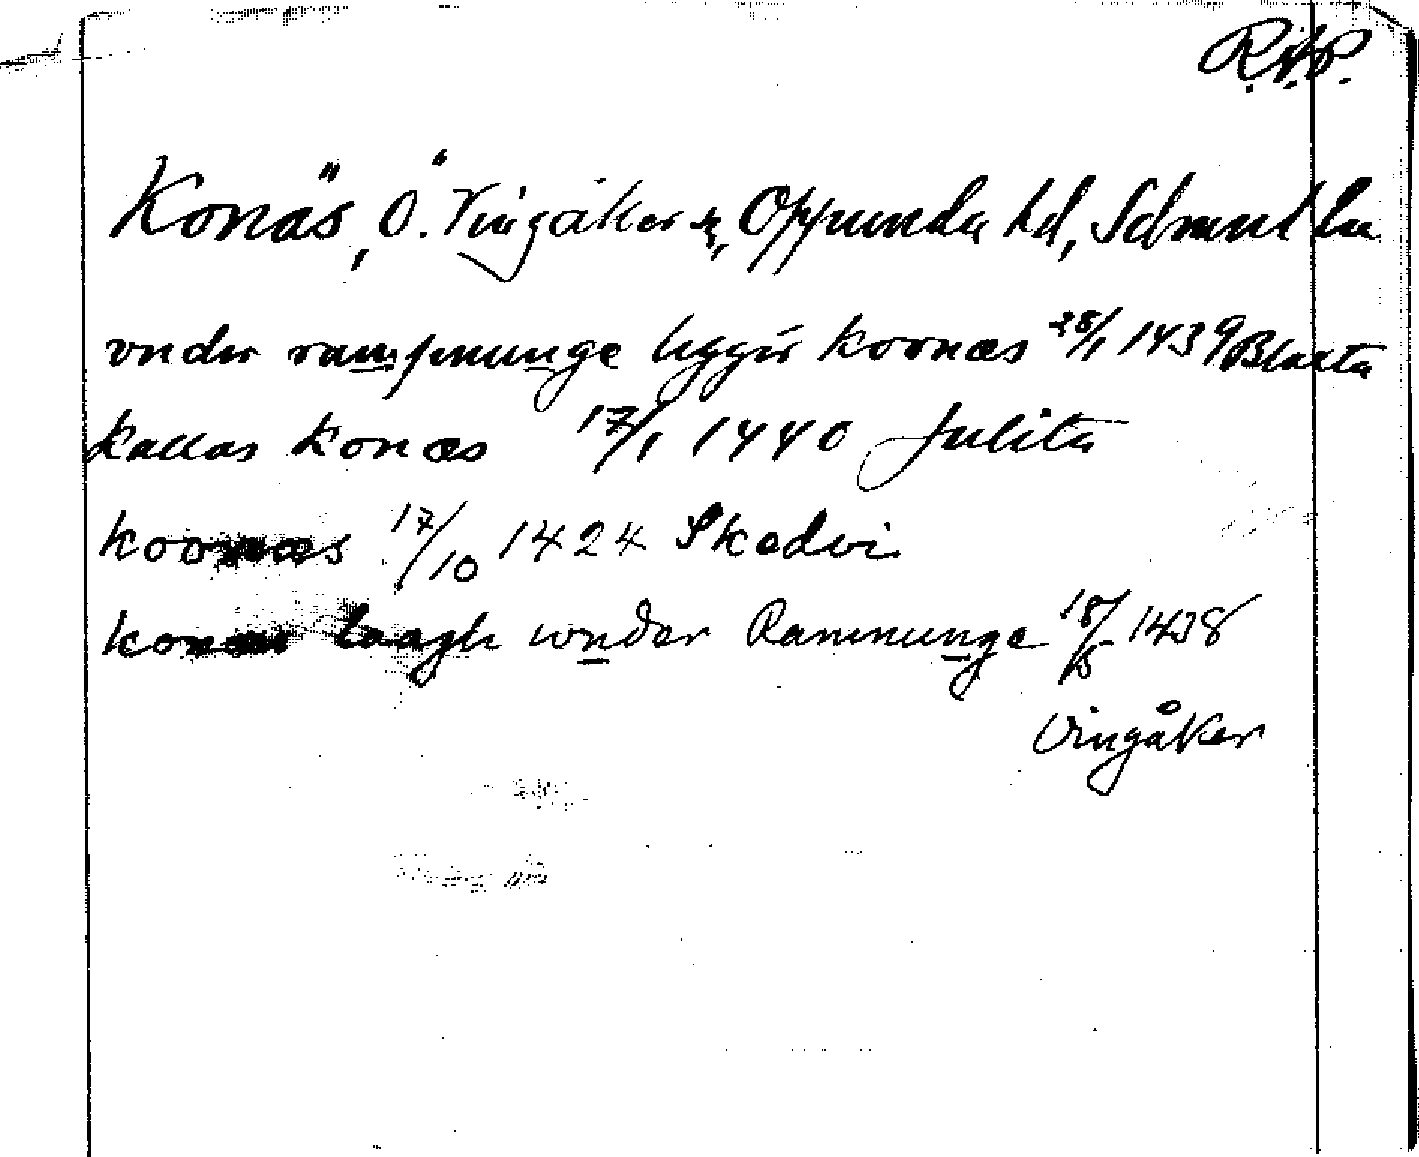 R.A.P.
Konäs, Ö. Vingåker sn, Oppunda hd, Sdmnl län
vnder rampnunge liggir koonæs 28/1 1439 Blaxta
kallas konæs 17/1 1440 Julita
koonæs 17/10 1424 Skedvi
konæs laagh wnder Ramnunge 18/5 1438
Vingåker